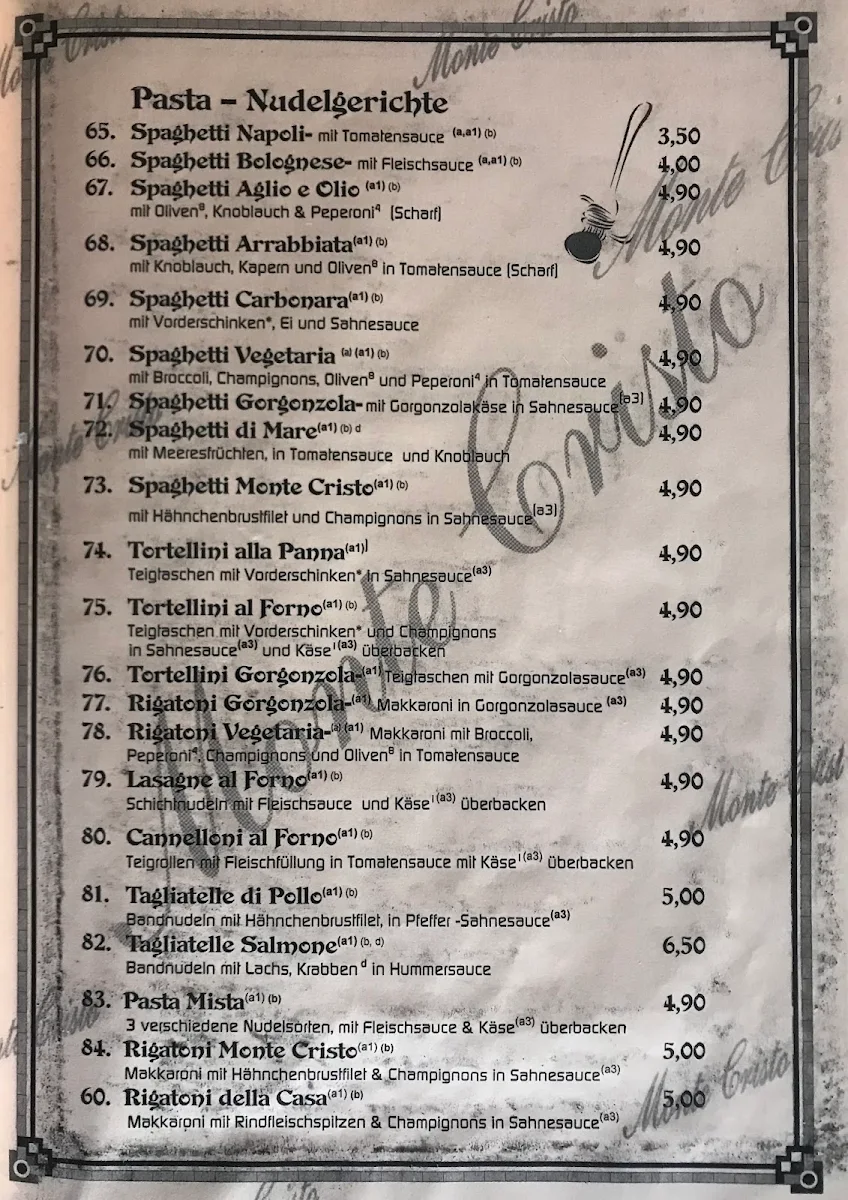 Pasta – Nudelgerichte
65. Spaghetti Napoli- mit Tomatensauce (a,a1) (b) 3,50
66. Spaghetti Bolognese- mit Fleischsauce (a,a1) (b) 4,00
67. Spaghetti Aglio e Olio (a1) (b) 4,90
mit Oliven⁸, Knoblauch & Peperoni⁴ (Scharf)
68. Spaghetti Arrabbiata(a1) (b) 4,90
mit Knoblauch, Kapern und Oliven⁸ in Tomatensauce (Scharf)
69. Spaghetti Carbonara(a1) (b) 4,90
mit Vorderschinken*, Ei und Sahnesauce
70. Spaghetti Vegetaria (a) (a1) (b) 4,90
mit Broccoli, Champignons, Oliven⁸ und Peperoni⁴ in Tomatensauce
71. Spaghetti Gorgonzola- mit Gorgonzolakäse in Sahnesauce(a3) 4,90
72. Spaghetti di Mare(a1) (b) d 4,90
mit Meeresfrüchten, in Tomatensauce und Knoblauch
73. Spaghetti Monte Cristo(a1) (b) 4,90
mit Hähnchenbrustfilet und Champignons in Sahnesauce(a3)
74. Tortellini alla Panna(a1) 4,90
Teigtaschen mit Vorderschinken* in Sahnesauce(a3)
75. Tortellini al Forno(a1) (b) 4,90
Teigtaschen mit Vorderschinken* und Champignons
in Sahnesauce(a3) und Käse¹(a3) überbacken
76. Tortellini Gorgonzola-(a1) Teigtaschen mit Gorgonzolasauce(a3) 4,90
77. Rigatoni Gorgonzola-(a1) Makkaroni in Gorgonzolasauce (a3) 4,90
78. Rigatoni Vegetaria-(a) (a1) Makkaroni mit Broccoli, 4,90
Peperoni⁴, Champignons und Oliven⁸ in Tomatensauce
79. Lasagne al Forno(a1) (b) 4,90
Schichtnudeln mit Fleischsauce und Käse¹(a3) überbacken
80. Cannelloni al Forno(a1) (b) 4,90
Teigrollen mit Fleischfüllung in Tomatensauce mit Käse¹(a3) überbacken
81. Tagliatelle di Pollo(a1) (b) 5,00
Bandnudeln mit Hähnchenbrustfilet, in Pfeffer -Sahnesauce(a3)
82. Tagliatelle Salmone(a1) (b, d) 6,50
Bandnudeln mit Lachs, Krabben d in Hummersauce
83. Pasta Mista(a1) (b) 4,90
3 verschiedene Nudelsorten, mit Fleischsauce & Käse(a3) überbacken
84. Rigatoni Monte Cristo(a1) (b) 5,00
Makkaroni mit Hähnchenbrustfilet & Champignons in Sahnesauce(a3)
60. Rigatoni della Casa(a1) (b) 5,00
Makkaroni mit Rindfleischspitzen & Champignons in Sahnesauce(a3)
Monte Cristo
Monte Cristo
Monte Cristo
Monte Cristo